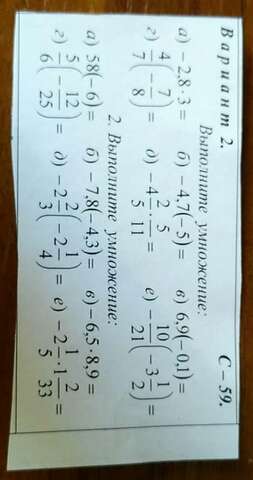 Вариант 2. С – 59.
Выполните умножение:
а) –2,8·3 = б) –4,7(–5)= в) 6,9(–0,1)=
г) 4/7(–7/8)= д) –4 2/5·5/11= е) –10/21(–3 1/2)=
2. Выполните умножение:
а) 58(–6)= б) –7,8(–4,3)= в) –6,5·8,9=
г) 5/6(–12/25)= д) –2 2/3(–2 1/4)= е) –2 1/5·1 2/33=